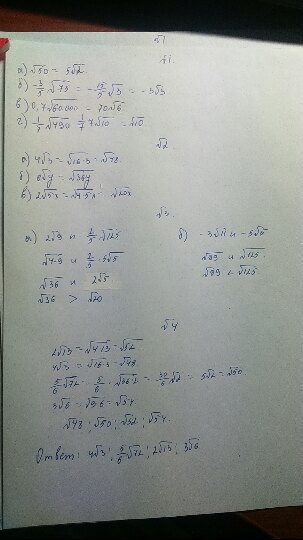 а) √50 = 5√2
б) -3/5 √75 = -15/5 √3 = -3√3
в) 0,7√60.000 = 70√6
г) -1/7 √490 1/7 7√10 = √10
√2.
а) 4√3 = √16·3 = √48.
в) 2√5x = √4·5x = √20x
√3.
а) 2√9 и 2/5 √125
√4·9 и 2/5 · 5√5
√36 и 2√5
√36 > √20
б) -3√11 и -5√5
√99 и √125
√99 < √125
√4
2√13 = √4·13 = √52
4√3 = √16·3 = √48.
5/6 √72 = 5/6 √36·2 = 30/6 √2 = 5√2 = √50
3√6 = √9·6 = √54
√48; √50; √52; √54.
Ответ: 4√3; 5/6 √72; 2√13; 3√6